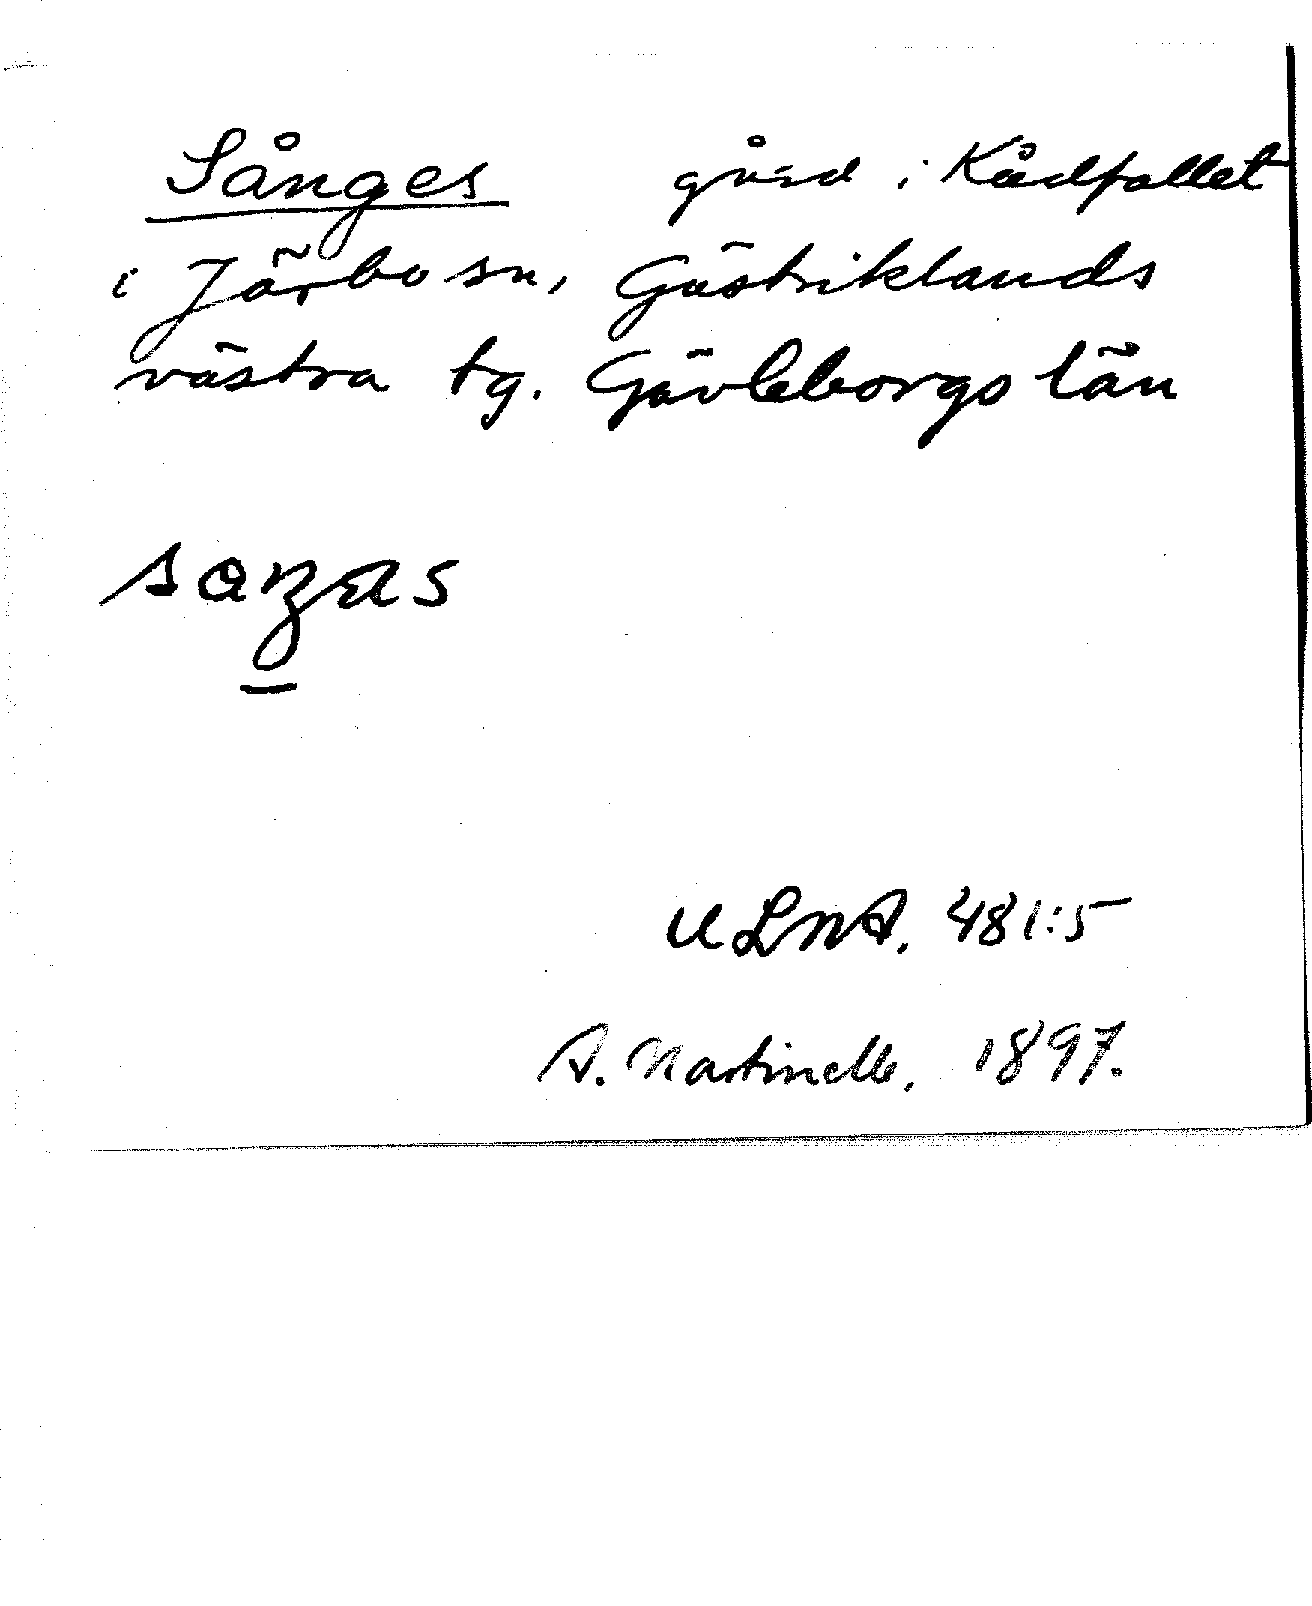 Sånges gård i Kådfallet
i Järbo sn, Gästriklands
västra tg. Gävleborgs län
ULMA. 481:5
A. Martinelle, 1897.